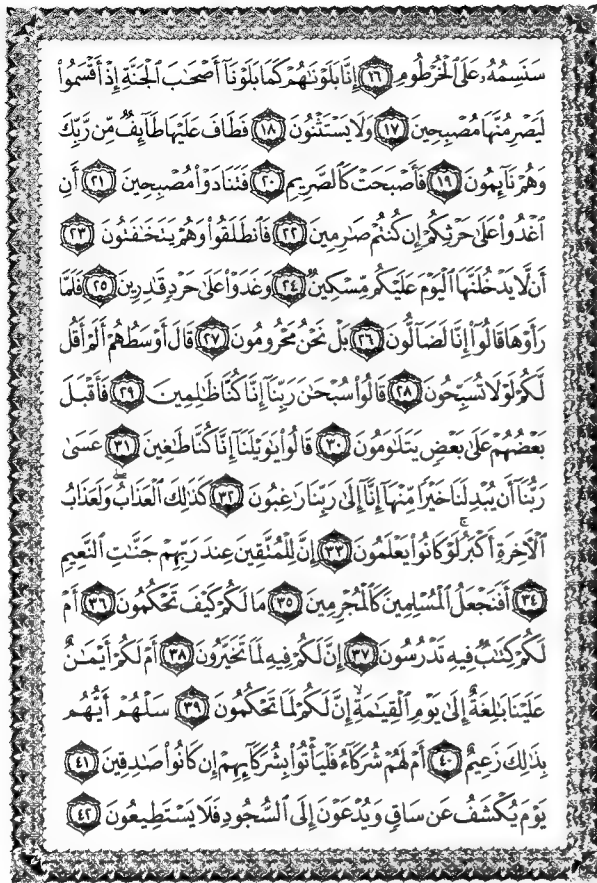 سَنَسِمُهُۥ عَلَى ٱلْخُرْطُومِ ١٦ إِنَّا بَلَوْنَـٰهُمْ كَمَا بَلَوْنَآ أَصْحَـٰبَ ٱلْجَنَّةِ إِذْ أَقْسَمُوا۟
لَيَصْرِمُنَّهَا مُصْبِحِينَ ١٧ وَلَا يَسْتَثْنُونَ ١٨ فَطَافَ عَلَيْهَا طَآئِفٌ مِّن رَّبِّكَ
وَهُمْ نَآئِمُونَ ١٩ فَأَصْبَحَتْ كَٱلصَّرِيمِ ٢٠ فَتَنَادَوْا۟ مُصْبِحِينَ ٢١ أَنِ
ٱغْدُوا۟ عَلَىٰ حَرْثِكُمْ إِن كُنتُمْ صَـٰرِمِينَ ٢٢ فَٱنطَلَقُوا۟ وَهُمْ يَتَخَـٰفَتُونَ ٢٣
أَن لَّا يَدْخُلَنَّهَا ٱلْيَوْمَ عَلَيْكُم مِّسْكِينٌ ٢٤ وَغَدَوْا۟ عَلَىٰ حَرْدٍ قَـٰدِرِينَ ٢٥ فَلَمَّا
رَأَوْهَا قَالُوٓا۟ إِنَّا لَضَآلُّونَ ٢٦ بَلْ نَحْنُ مَحْرُومُونَ ٢٧ قَالَ أَوْسَطُهُمْ أَلَمْ أَقُل
لَّكُمْ لَوْلَا تُسَبِّحُونَ ٢٨ قَالُوا۟ سُبْحَـٰنَ رَبِّنَآ إِنَّا كُنَّا ظَـٰلِمِينَ ٢٩ فَأَقْبَلَ
بَعْضُهُمْ عَلَىٰ بَعْضٍ يَتَلَـٰوَمُونَ ٣٠ قَالُوا۟ يَـٰوَيْلَنَآ إِنَّا كُنَّا طَـٰغِينَ ٣١ عَسَىٰ
رَبُّنَآ أَن يُبْدِلَنَا خَيْرًا مِّنْهَآ إِنَّآ إِلَىٰ رَبِّنَا رَٰغِبُونَ ٣٢ كَذَٰلِكَ ٱلْعَذَابُ ۖ وَلَعَذَابُ
ٱلْـَٔاخِرَةِ أَكْبَرُ ۚ لَوْ كَانُوا۟ يَعْلَمُونَ ٣٣ إِنَّ لِلْمُتَّقِينَ عِندَ رَبِّهِمْ جَنَّـٰتِ ٱلنَّعِيمِ
٣٤ أَفَنَجْعَلُ ٱلْمُسْلِمِينَ كَٱلْمُجْرِمِينَ ٣٥ مَا لَكُمْ كَيْفَ تَحْكُمُونَ ٣٦ أَمْ
لَكُمْ كِتَـٰبٌ فِيهِ تَدْرُسُونَ ٣٧ إِنَّ لَكُمْ فِيهِ لَمَا تَخَيَّرُونَ ٣٨ أَمْ لَكُمْ أَيْمَـٰنٌ
عَلَيْنَا بَـٰلِغَةٌ إِلَىٰ يَوْمِ ٱلْقِيَـٰمَةِ ۙ إِنَّ لَكُمْ لَمَا تَحْكُمُونَ ٣٩ سَلْهُمْ أَيُّهُم
بِذَٰلِكَ زَعِيمٌ ٤٠ أَمْ لَهُمْ شُرَكَآءُ فَلْيَأْتُوا۟ بِشُرَكَآئِهِمْ إِن كَانُوا۟ صَـٰدِقِينَ ٤١
يَوْمَ يُكْشَفُ عَن سَاقٍ وَيُدْعَوْنَ إِلَى ٱلسُّجُودِ فَلَا يَسْتَطِيعُونَ ٤٢